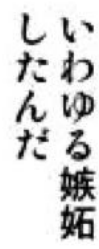 いわゆる嫉妬
したんだ